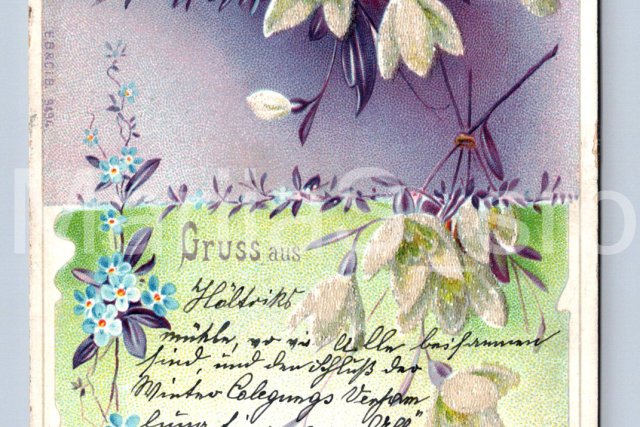 EB&CIB 9494
Gruss aus
Höltriks
mühle, wo wir Alle beisammen
sind, und den Schluß der
Winter Colegungs Versam
lung